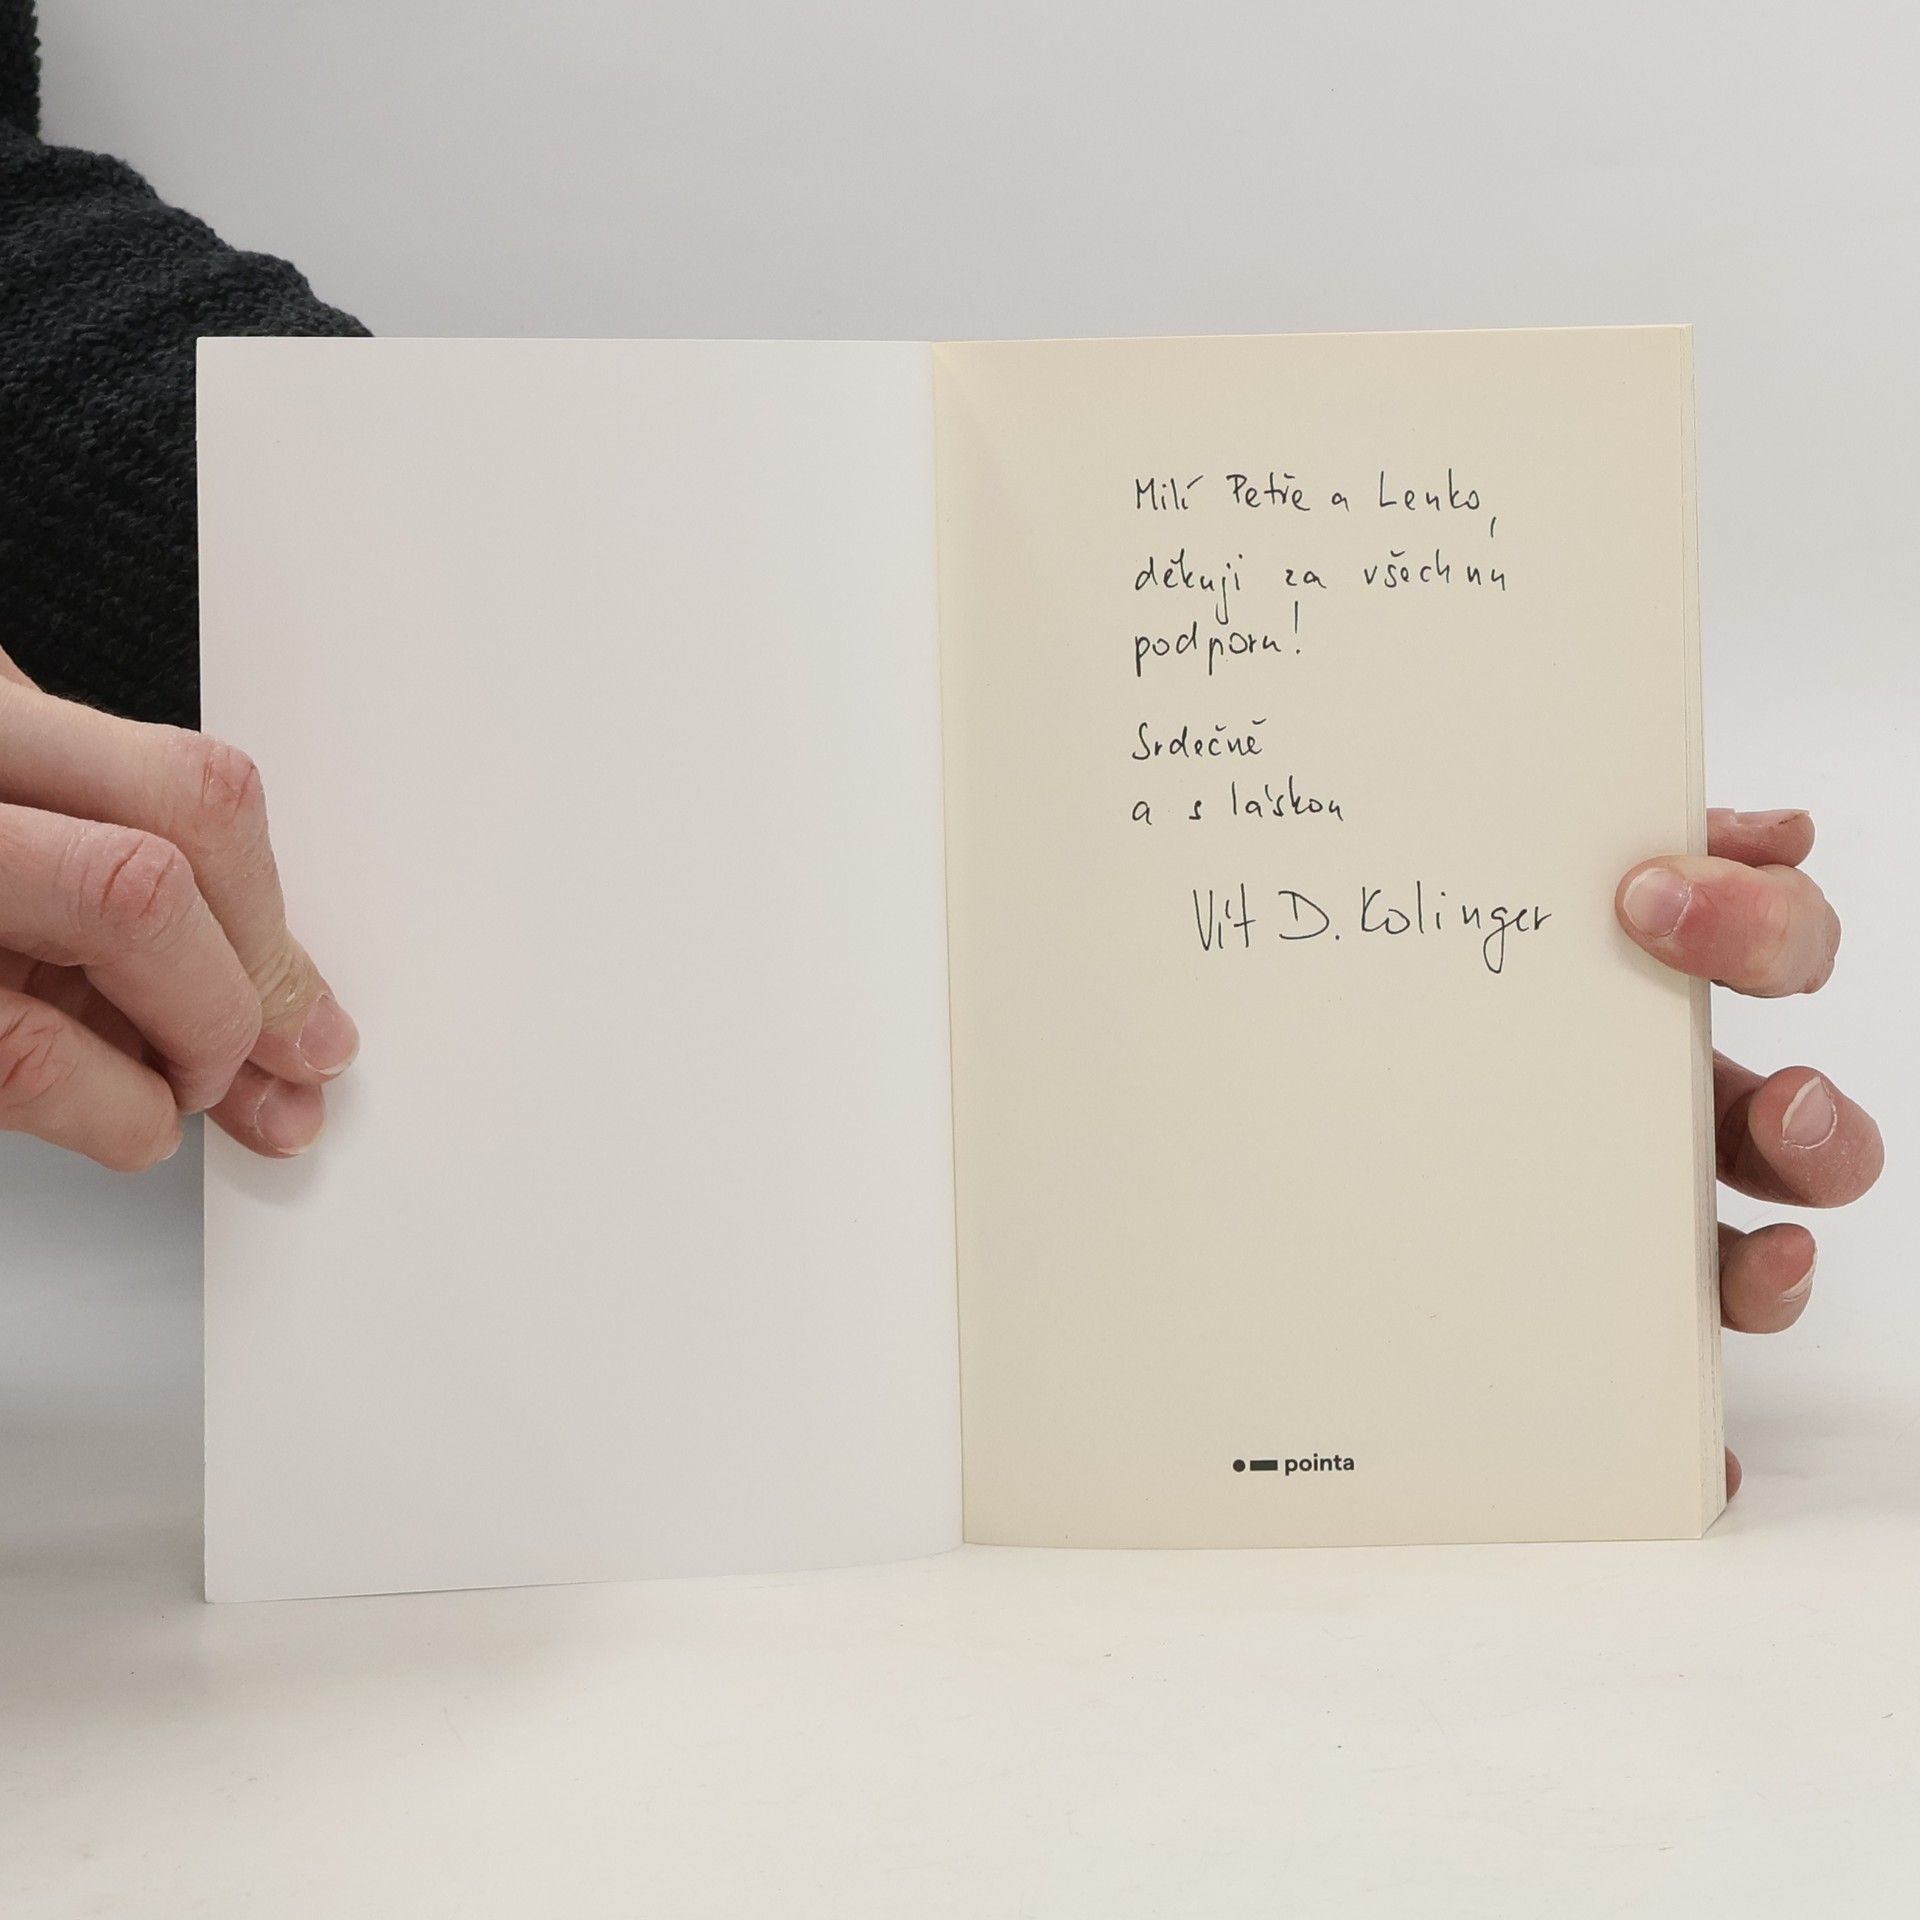 Milí Petře a Lenko,
děkuji za všechnu
podporu!
Srdečně
a s láskou
Vít D. Kolinger
pointa